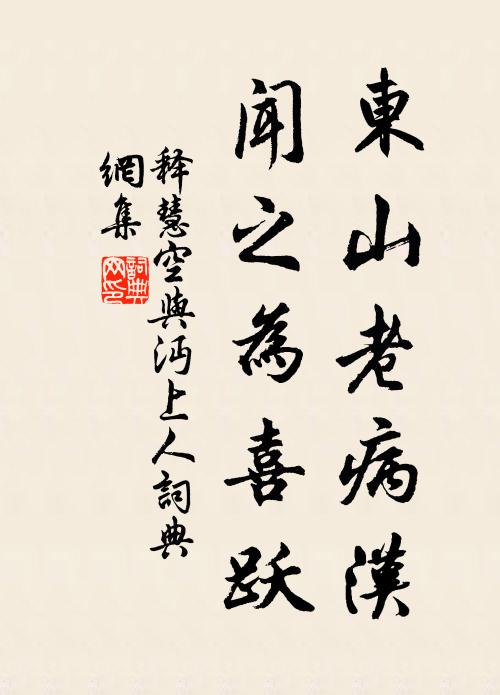 東山老病漢
聞之為喜跃
释慧空與沔上人詞典
網集
詞典
网印